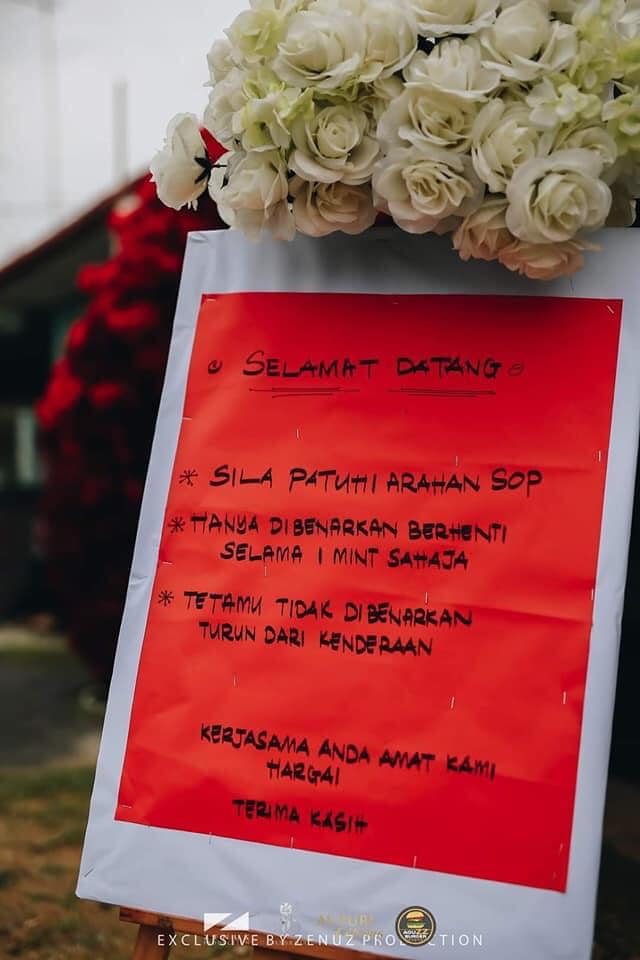 SELAMAT DATANG
* SILA PATUHI ARAHAN SOP
* HANYA DIBENARKAN BERHENTI
SELAMA 1 MINT SAHAJA
* TETAMU TIDAK DIBENARKAN
TURUN DARI KENDERAAN
KERJASAMA ANDA AMAT KAMI
HARGAI
TERIMA KASIH
BURGER
EXCLUSIVE BY ZENUZ PRODUCTION